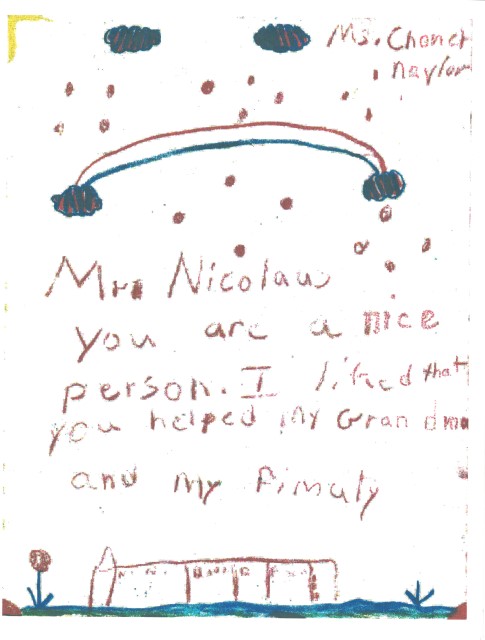 Ms. Chanet
Naylor
Mrs Nicolaus
you are a nice
person. I liked that
you helped my Grandma
and my Fimaly